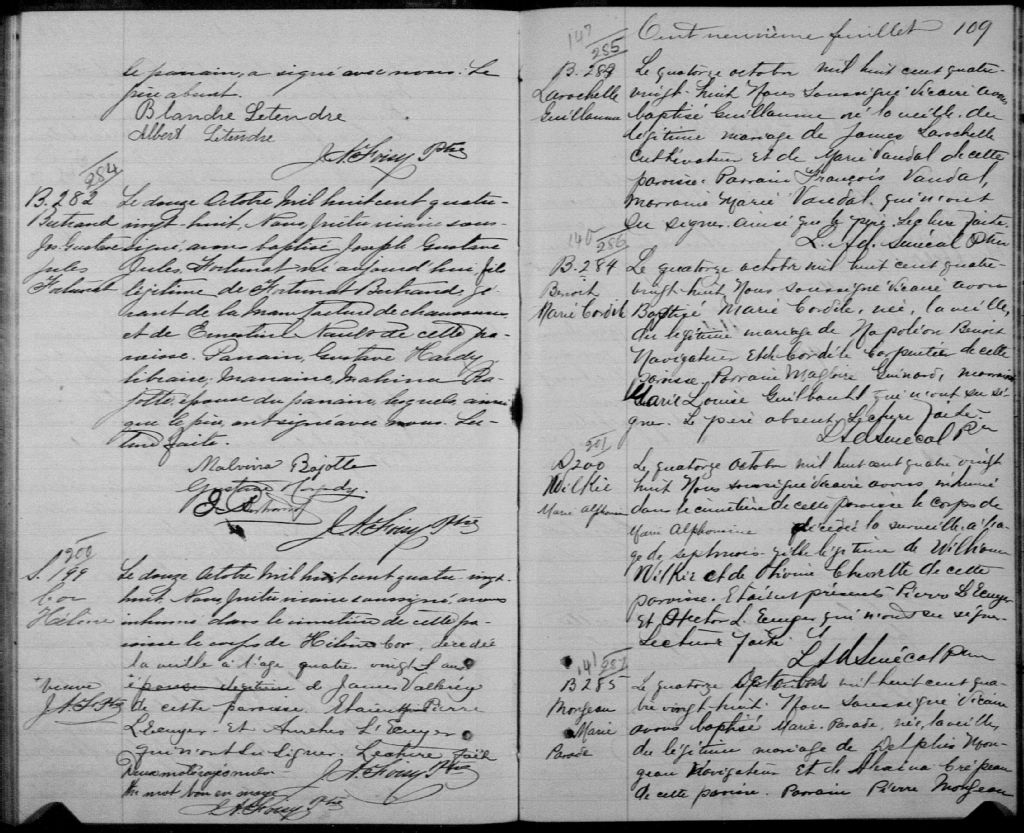 le parrain, a signé avec nous. Le
père absent.
Blandre Letendre
Albert Letendre
Ptre
284
B. 282
Bertrand
Jos. Gustave
Jules
Fortunat
Le douze Octobre Mil huit cent quatre-
vingt-huit, Nous, Prêtre vicaire sous-
signé avons baptisé Joseph Gustave
Jules Fortunat né aujourd'hui, fils
légitime de Fortunat Bertrand, gé-
rant de la manufacture de chaussures
et de Ernestine Nault de cette pa-
roisse. Parrain, Gustave Hardy,
libraire, Marraine, Malvina Ra-
jotte, épouse du parrain, lesquels ainsi
que le père, ont signé avec nous. Lec-
ture faite.
Malvina Rajotte
Gustave Hardy.
Ptre
S. 199
Cor
Hélène
veuve
Le douze Octobre Mil huit cent quatre vingt-
huit Nous, Prêtre vicaire soussigné avons
inhumé dans le cimetière de cette pa-
roisse le corps de Hélène Cor, décédée
la veille à l'age quatre vingt ans
épouse légitime de James
de cette paroisse. Etaient Pierre
L'Ecuyer Et L'Ecuyer
qui n'ont su signer. Lecture faite
Ptre
Un mot bon en marge
Ptre
Cent neuvième feuillet 109
147
285
B. 283
Larochelle
Guillaume
Le quatorze octobre mil huit cent quatre-
vingt-huit Nous soussigné Vicaire avons
baptisé Guillaume né la veille du
légitime mariage de James Larochelle
Cultivateur Et de Marie Vandal de cette
paroisse. Parrain François Vandal,
Marraine Marie Vandal qui n'ont
su signer ainsi que le père. Lecture faite.
L. Ad. Senécal Ptre
140
286
B. 284
Benoit
Marie Cordile
Le quatorze octobre mil huit cent quatre-
vingt-huit Nous soussigné Vicaire avons
Baptisé Marie Cordile, née, la veille,
du légitime mariage de Napoléon Benoit
Navigateur Et de Cordéle Carpentier de cette
paroisse, Parrain Magloire Guinard, marraine
Marie Louise Guilbault qui n'ont su si-
gner. Le père absent, Lecture faite
L. Ad Senécal Ptre
201
S 200
Wilkie
Marie Alphonsine
Le quatorze octobre mil huit cent quatre vingt
huit Nous soussigné Vicaire avons inhumé
dans le cimetière de cette paroisse le corps de
Marie Alphonsine décédée la surveille à l'a-
ge de sept mois fille légitime de William
Wilkie et de Olivine Chevrette de cette
paroisse. Etaient présents Pierre L'Ecuyer
Et Hector L'Ecuyer qui n'ont su signer
Lecture faite
L Ad Senécal Ptre
141
287
B 285
Mongeau
Marie
Parade
Le quatorze Octobre mil huit cent qua-
tre vingt-huit. Nous soussigné Vicaire
avons baptisé Marie-Parade, née, la veille,
du légitime mariage de Delphis Mon-
geau Navigateur Et de Crépeau
de cette paroisse. Parrain Pierre Mongeau